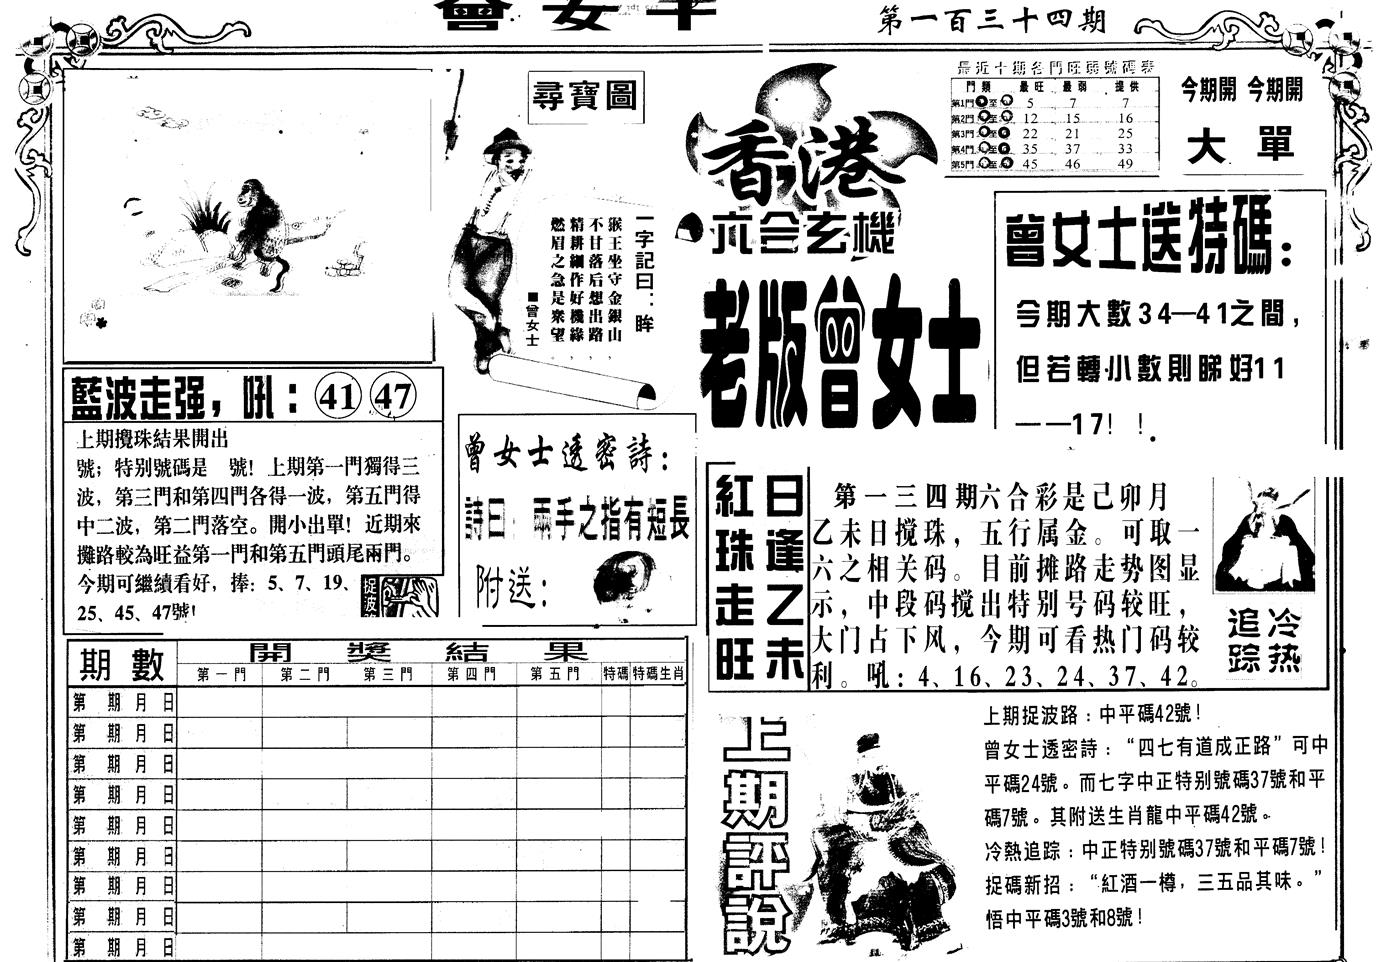 第一百三十四期
尋寶圖
一字記曰：眸
猴王坐守金銀山，
不甘落后想出路，
精耕細作好機緣，
燃眉之急是衆望
■曾女士
香港
六合玄機
老版曾女士
最近十期各門旺弱號碼表
門類 最旺 最弱 提供
第1門 至 5 7 7
第2門 至 12 15 16
第3門 至 22 21 25
第4門 至 35 37 33
第5門 至 45 46 49
今期開 今期開
大 單
曾女士送特碼：
今期大數34—41之間，
但若轉小數則睇好11
——17！！
藍波走强，吼：41 47
上期攪珠結果開出
號；特别號碼是 號！上期第一門獨得三
波，第三門和第四門各得一波，第五門得
中二波，第二門落空。開小出單！近期來
攤路較為旺益第一門和第五門頭尾兩門。
今期可繼續看好，捧：5、7、19、
25、45、47號！
捉波
曾女士透密詩：
詩曰：兩手之指有短長
附送：
紅珠走旺
日逢乙未
第一三四期六合彩是己卯月
乙未日搅珠，五行属金。可取一
六之相关码。目前摊路走势图显
示，中段码搅出特别号码较旺，
大门占下风，今期可看热门码较
利。吼：4、16、23、24、37、42。
追踪
冷热
期數 開獎結果
第一門 第二門 第三門 第四門 第五門 特碼 特碼生肖
第 期 月 日
第 期 月 日
第 期 月 日
第 期 月 日
第 期 月 日
第 期 月 日
第 期 月 日
第 期 月 日
第 期 月 日
上期評說
上期捉波路：中平碼42號！
曾女士透密詩：“四七有道成正路”可中
平碼24號。而七字中正特别號碼37號和平
碼7號。其附送生肖龍中平碼42號。
冷熱追踪：中正特别號碼37號和平碼7號！
捉碼新招：“紅酒一樽，三五品其味。”
悟中平碼3號和8號！